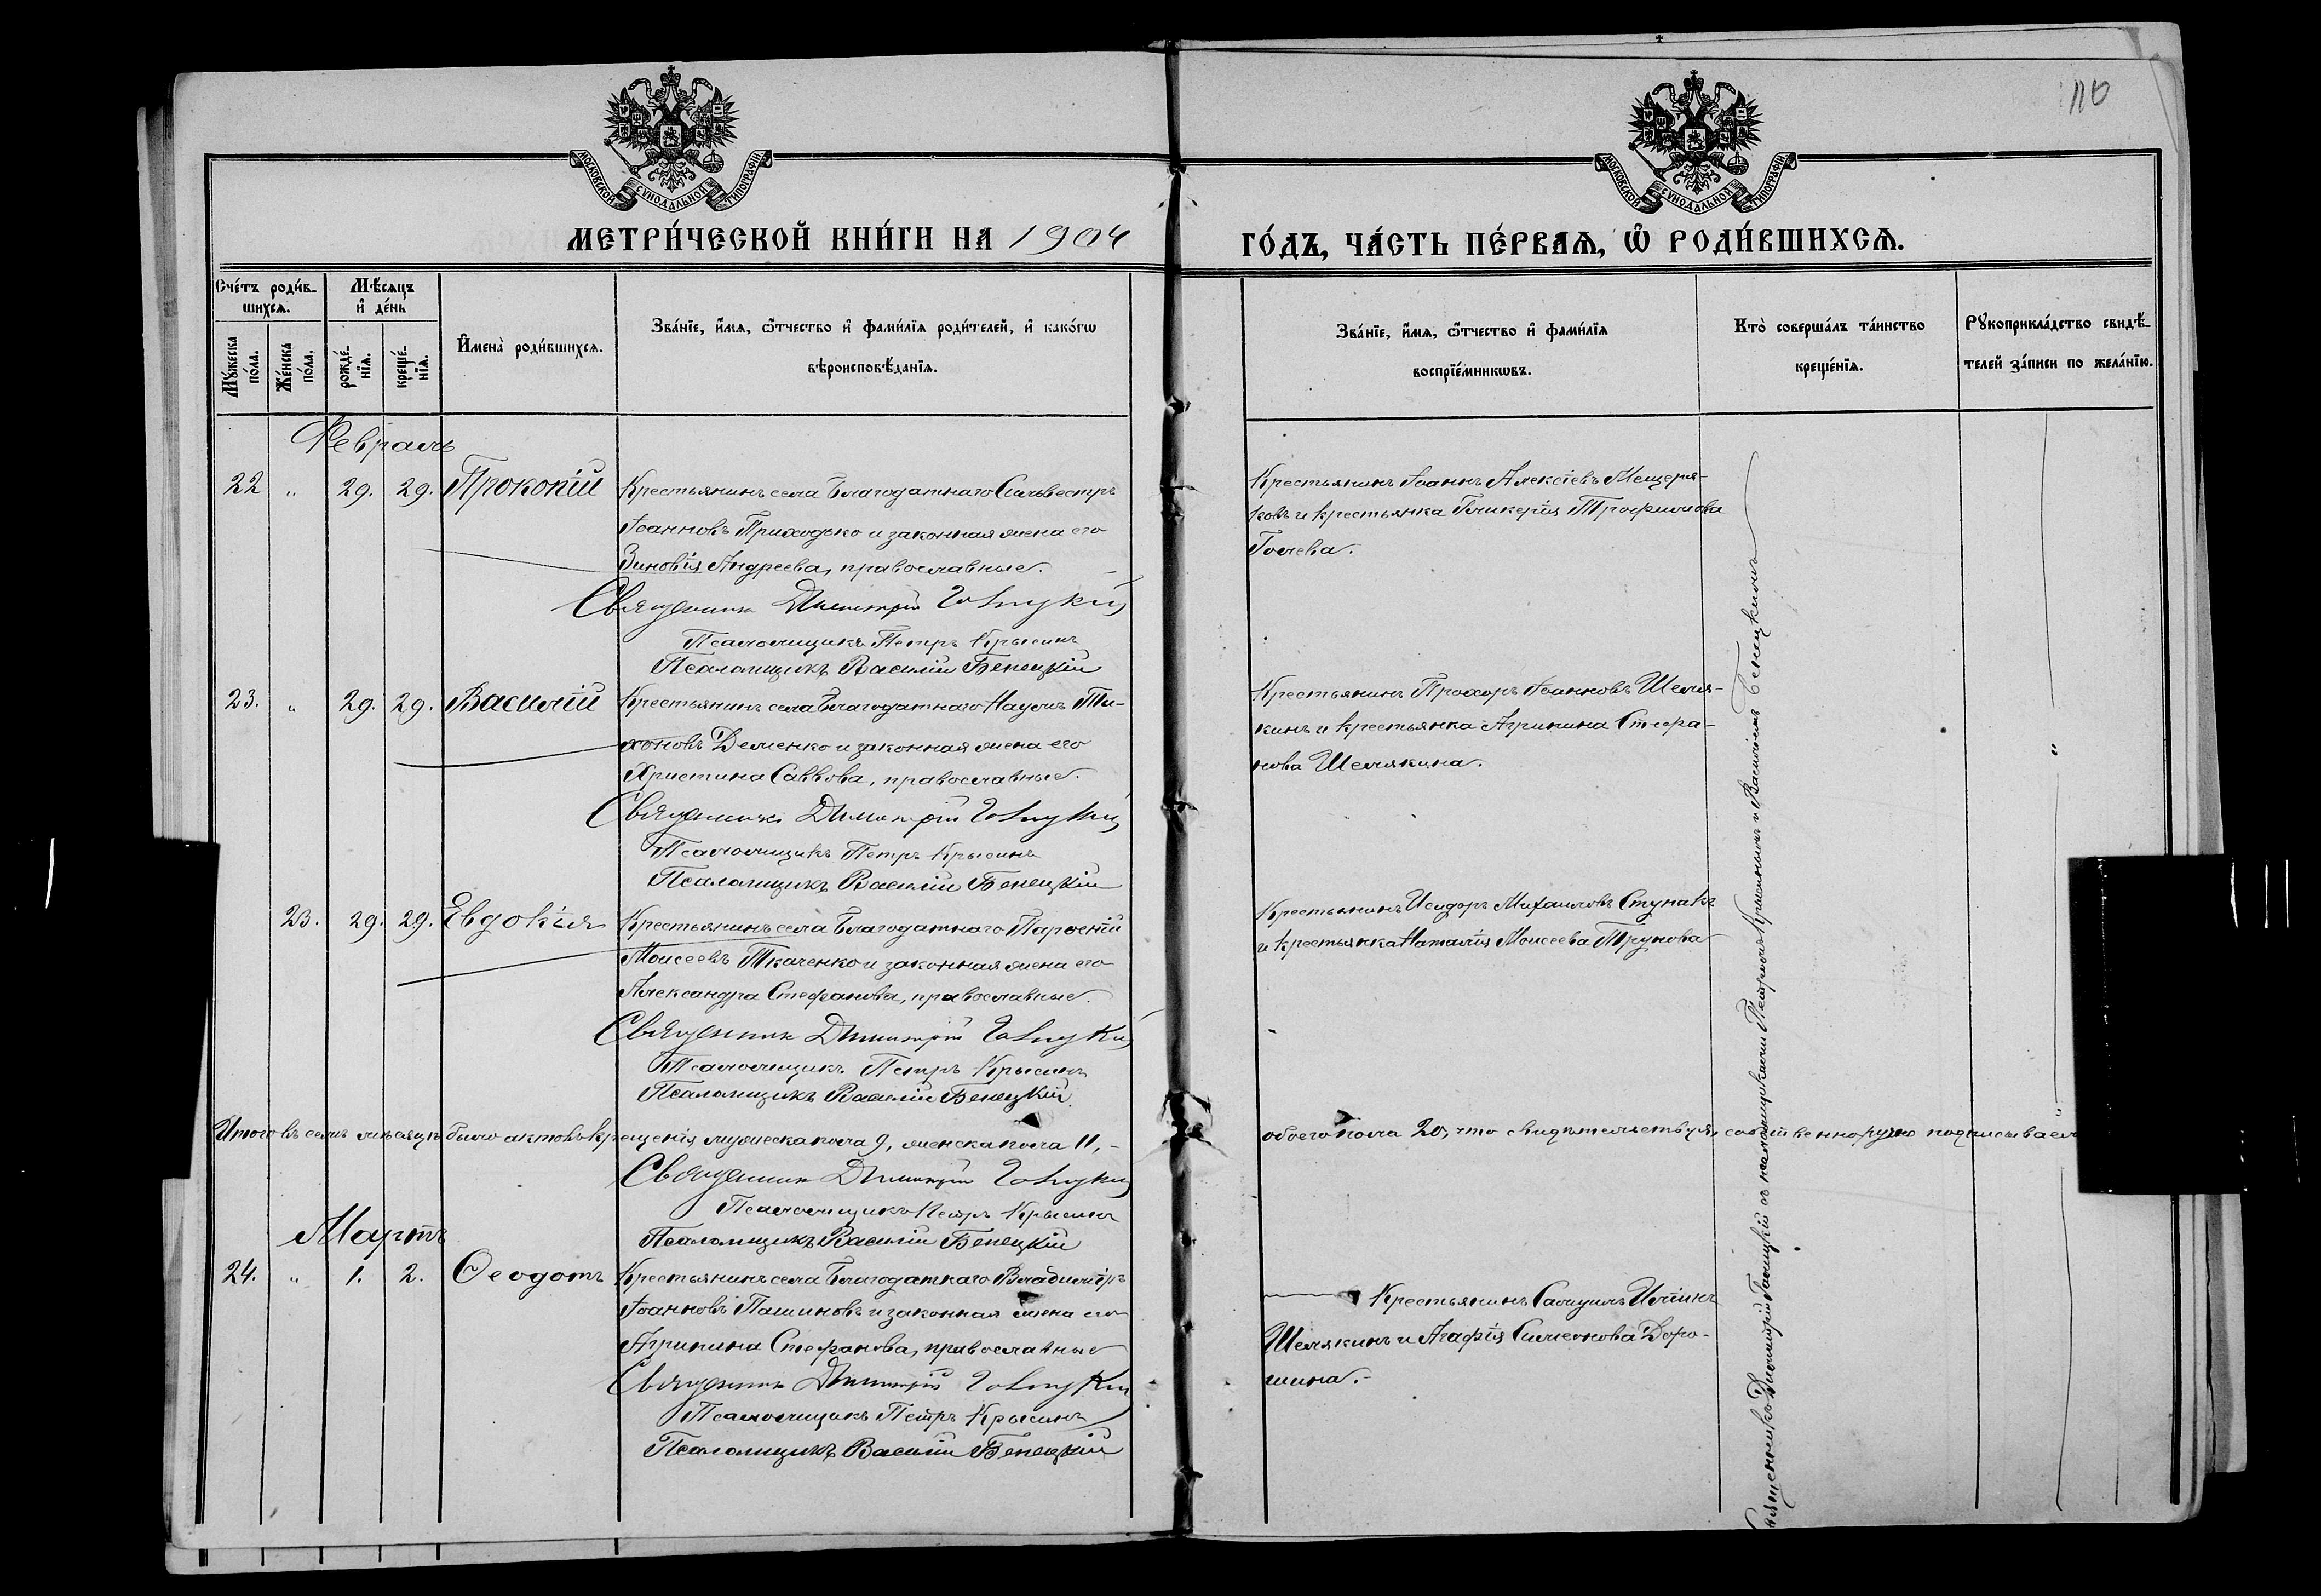 110
МОСКОВСКОЙ СУНОДАЛЬНОЙ ТИПОГРАФІИ.
МОСКОВСКОЙ СУНОДАЛЬНОЙ ТИПОГРАФІИ.
МЕТРИ́ЧЕСКОЙ КНИ́ГИ НА 1904
ГО́ДЪ, ЧА́СТЬ ПЕ́РВАЯ, Ѽ РОДИ́ВШИХСЯ.
Сче́тъ роди́в-
шихся.
Мѣ́сяцъ
и҆ де́нь
Мꙋ́жеска
по́ла.
Же́нска
по́ла.
рожде́-
нїя.
креще́-
нїя.
И҆мена̀ роди́вшихся.
Зва́нїе, и҆́мя, ѻ҆́тчество и҆ фами́лїя роди́телей, и҆ како́гѡ
вѣроисповѣ́данїя.
Зва́нїе, и҆́мя, ѻ҆́тчество и҆ фами́лїя
воспрїе́мникѡвъ.
Кто̀ соверша́лъ та́инство
креще́нїя.
Рꙋкоприкла́дство свидѣ́-
телей за́писи по жела́нїю.
Февраль
22 " 29. 29. Прокопій
Крестьянинъ села Благодатнаго Сильвестръ
Іоанновъ Приходько и законная жена его
Зиновія Андреева, православные.
Священникъ Димитрій Голицкій
Псаломщикъ Петръ Крысинъ
Псаломщикъ Василій Бенецкій
Крестьянинъ Іоаннъ Алексіевъ Мещеря-
ковъ и крестьянка Гликерія Трофимова
Голева.
23. " 29. 29. Василій
Крестьянинъ села Благодатнаго Наумъ Ти-
хоновъ Деменко и законная жена его
Христина Саввова, православные.
Священникъ Димитрій Голицкій
Псаломщикъ Петръ Крысинъ
Псаломщикъ Василій Бенецкій
Крестьянинъ Прохоръ Іоанновъ Шемя-
кинъ и крестьянка Агрипина Стефа-
нова Шемякина.
"
23. 29. 29. Евдокія
Крестьянинъ села Благодатнаго Парѳеній
Моисеевъ Ткаченко и законная жена его
Александра Стефанова, православные.
Священникъ Димитрій Голицкій
Псаломщикъ Петръ Крысинъ
Псаломщикъ Василій Бенецкій
Крестьянинъ Исидоръ Михаиловъ Ступакъ
и крестьянка Наталія Моисеева Трунова
Итого въ семъ мѣсяцѣ было актовъ крещенія мужеска пола 9, женска пола 11,-
обоего пола 20, что свидѣтельствуя, собственноручно подписываем
Священникъ Димитрій Голицкій
Псаломщикъ Петръ Крысинъ
Псаломщикъ Василій Бенецкій
Мартъ
24. " 1. 2. Ѳеодотъ
Крестьянинъ села Благодатнаго Владиміръ
Іоанновъ Пашиновъ и законная жена его
Агрипина Стефанова, православные
Священникъ Димитрій Голицкій
Псаломщикъ Петръ Крысинъ
Псаломщикъ Василій Бенецкій
Крестьянинъ Самуилъ Иліинъ
Шемякинъ и Агафія Симеонова Доро-
шина.-
Священникъ Димитрій Голицкій съ псаломщиками Петромъ Крысинымъ и Василіемъ Бенецкимъ